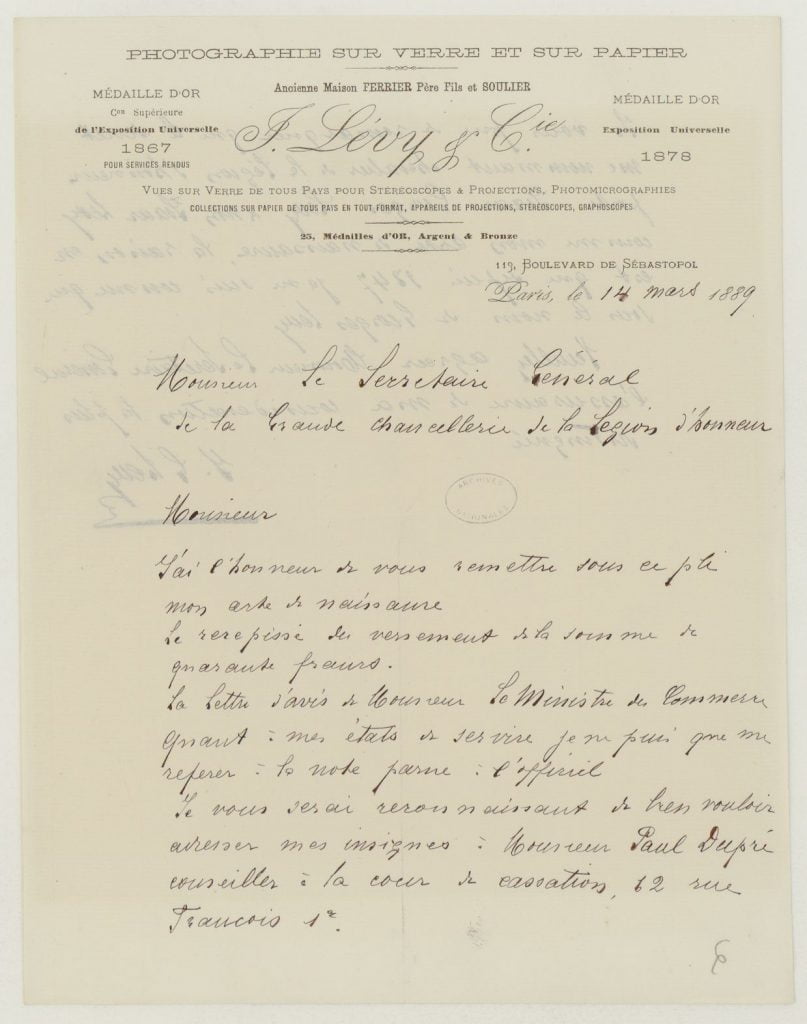 PHOTOGRAPHIE SUR VERRE ET SUR PAPIER
Ancienne Maison FERRIER Père Fils et SOULIER
J. Lévy & Cie
MÉDAILLE D'OR
Con Supérieure
de l'Exposition Universelle
1867
POUR SERVICES RENDUS
MÉDAILLE D'OR
Exposition Universelle
1878
VUES SUR VERRE DE TOUS PAYS POUR STÉRÉOSCOPES & PROJECTIONS, PHOTOMICROGRAPHIES
COLLECTIONS SUR PAPIER DE TOUS PAYS EN TOUT FORMAT, APPAREILS DE PROJECTIONS, STÉRÉOSCOPES, GRAPHOSCOPES
25, Médailles d'OR, Argent & Bronze
119, BOULEVARD DE SÉBASTOPOL
Paris, le 14 mars 1889
Monsieur Le Secretaire Général
de la Grande chancellerie de la Legion d'honneur
ARCHIVES NATIONALES
Monsieur
J'ai l'honneur de vous remettre sous ce pli
mon acte de naissance
Le recepissé du versement de la somme de
quarante francs.
La Lettre d'avis de Monsieur Le Ministre du Commerce
Quant à mes états de service je ne puis que me
referer à la note parue à l'officiel
Je vous serai reconnaissant de bien vouloir
adresser mes insignes à Monsieur Paul Dupré
conseiller à la cour de cassation, 62 rue
Francois 1er.